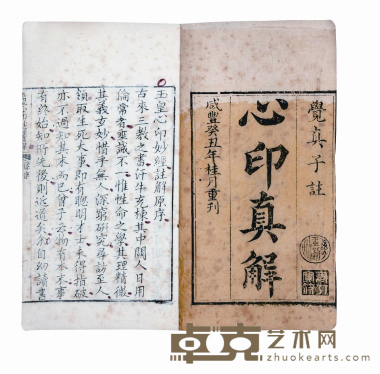 覺真子註
心印真解
咸豐癸丑年桂月重刊
玉皇心印妙經註解原序
古來三教之書汗牛充棟其中關人日用
倫常者垂誡不一惟性命之學其理精微
其義玄妙惜乎無人深窮研究尋訪至人
領取生死大事即有聰明才士未得指破
亦不過知其末而已曾子云物有本末事
有終始知所先後則近道矣我自幼讀書
卓克艺术网
zhuokearts.com